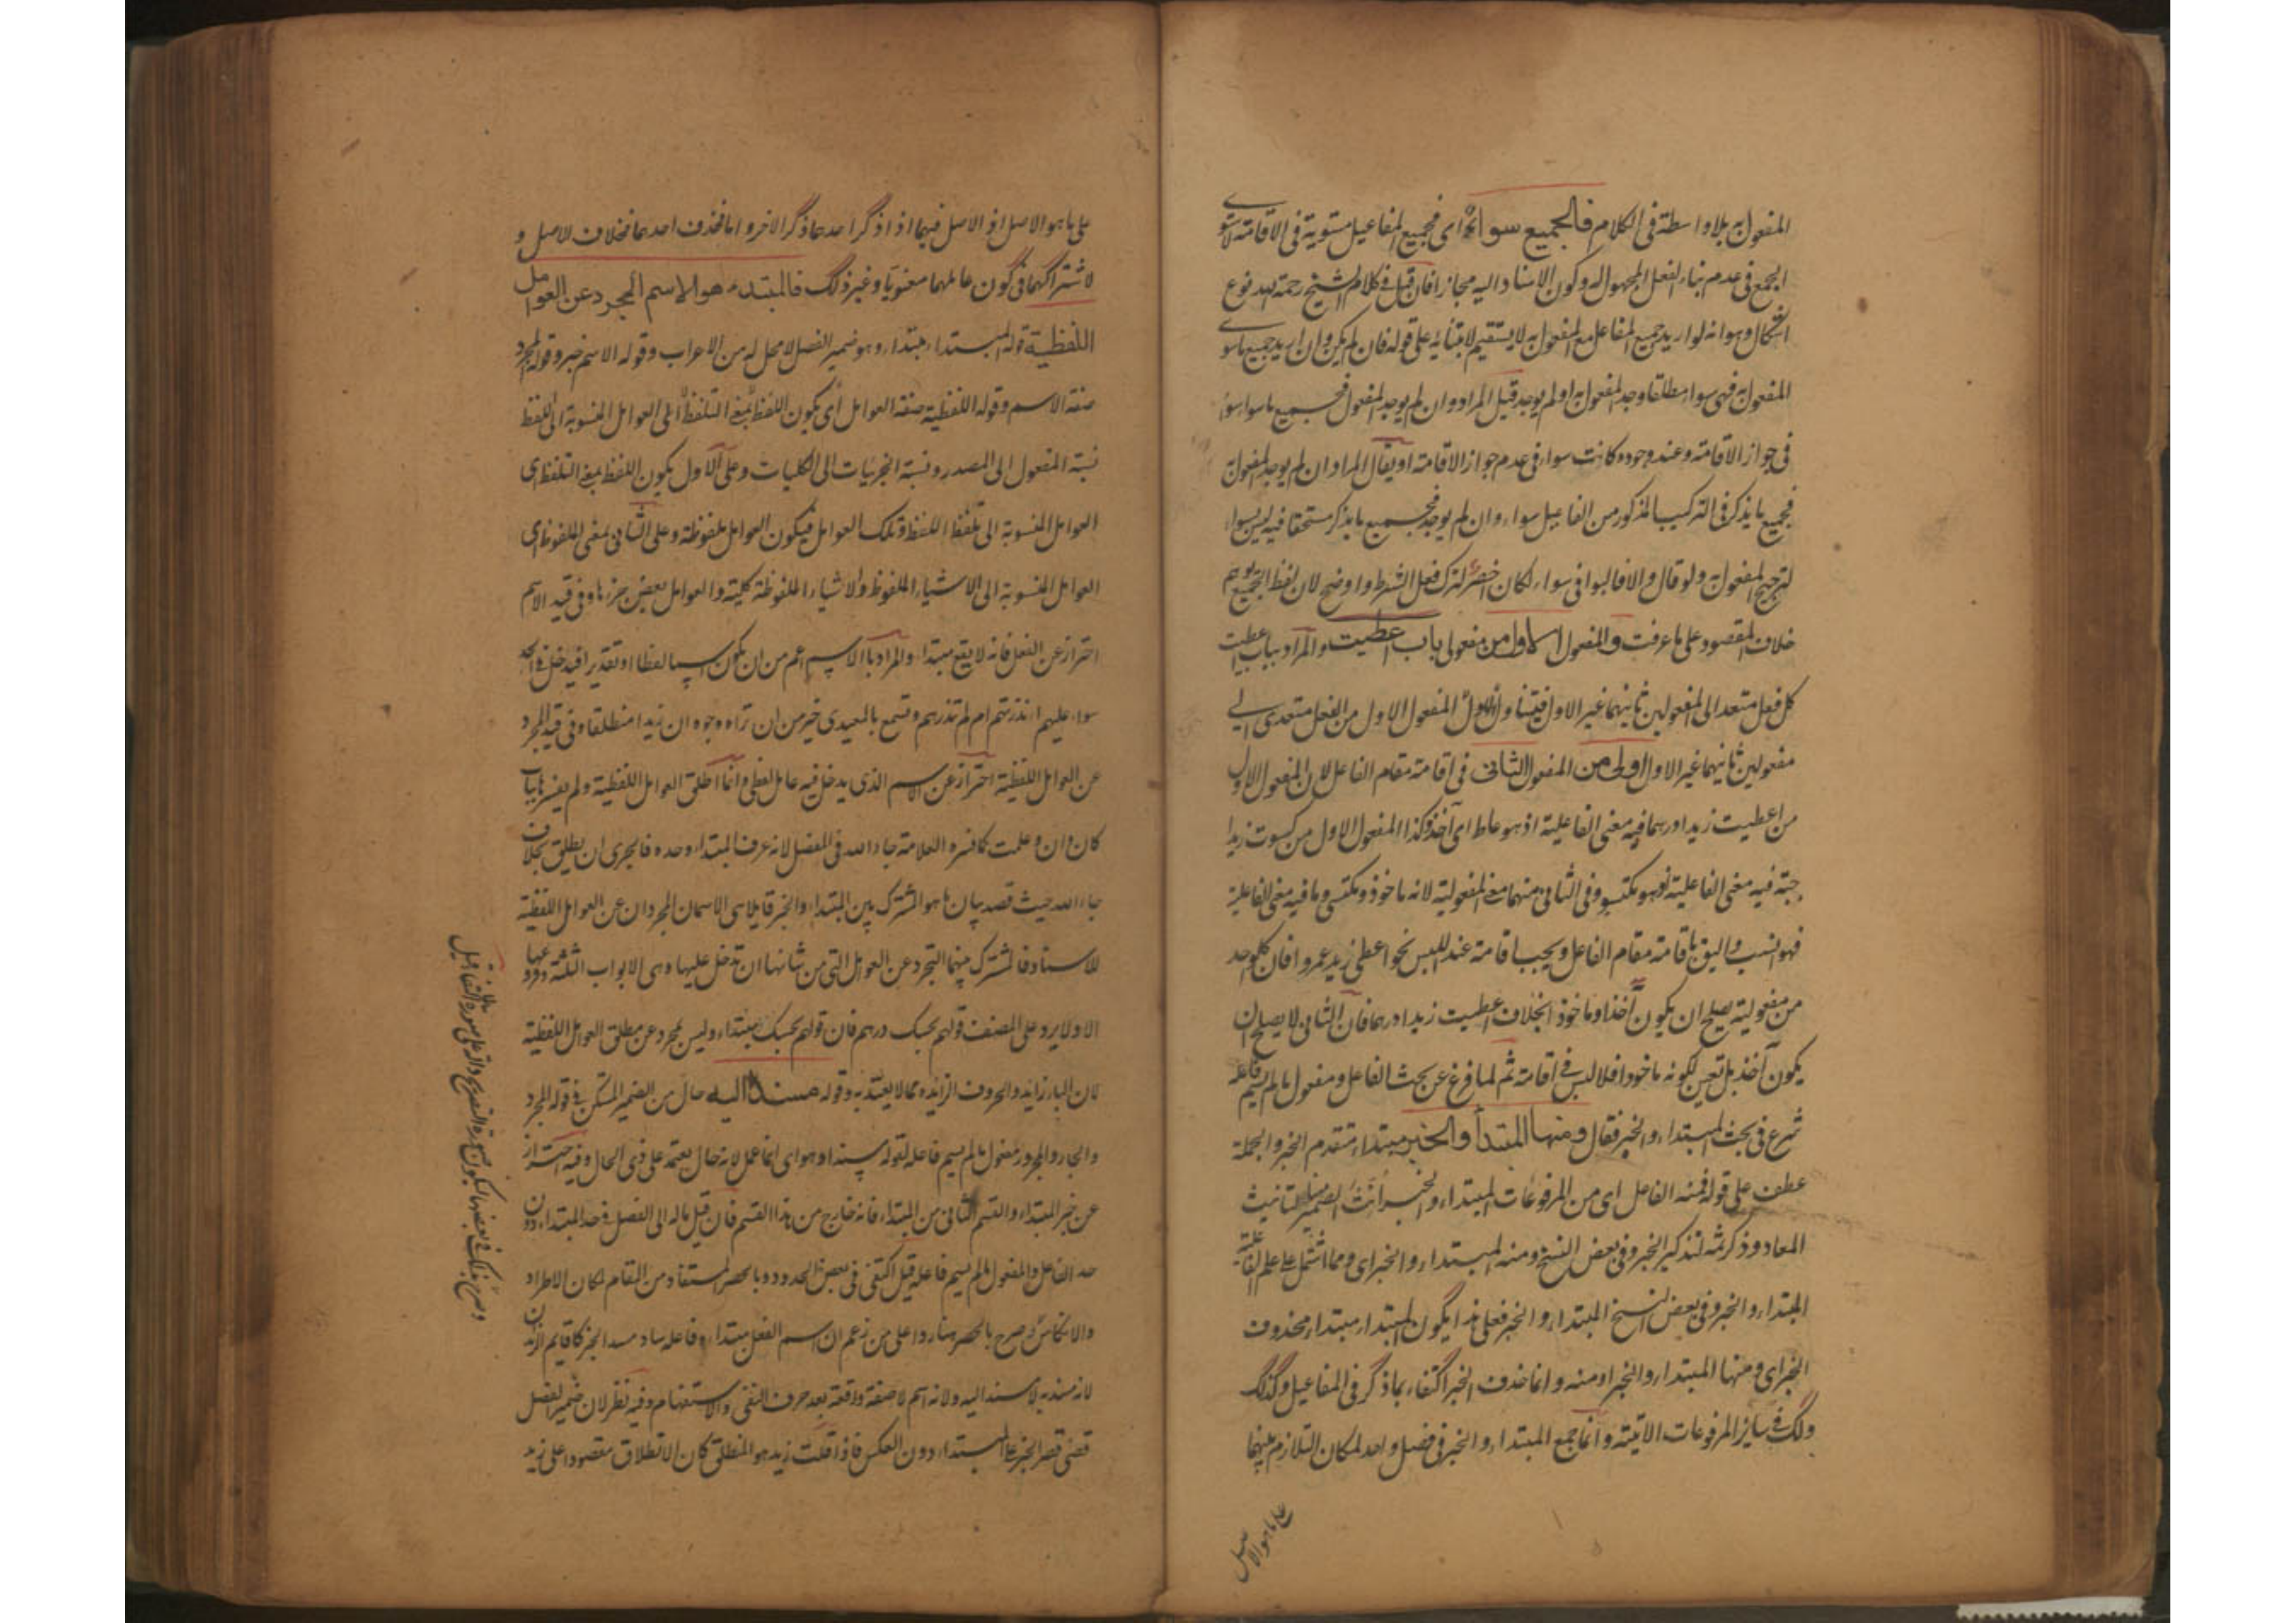 المفعول به بلا واسطة فى الكلام فالجميع سواء اى فجميع المفاعيل مستوية فى الاقامة لاستوى
الجمع فى عدم بناء الفعل المجهول له وكون الاسناد اليه مجازا فان قيل فى كلام الشيخ رحمة الله نوع
اشكال وهو انه لو اريد جميع المفاعل مع المفعول به لا يستقيم لابتنائه على قوله فان لم يكن وان اريد جميع ما سوى
المفعول به فهى سواء مطلقا وجد المفعول به او لم يوجد قيل المراد وان لم يوجد المفعول فجميع ما سواه سواء
فى جواز الاقامة وعند وجوده كانت سواء فى عدم جواز الاقامة او يقال المراد ان لم يوجد المفعول به
فجميع ما يذكر فى التركيب المذكور من المفاعيل سواء وان لم يوجد فجميع ما يذكر مستحقا فيه ليس سواء
لترجيح المفعول به ولو قال والا فالبواقى سواء لكان اخصر لترك فعل الشرط واوضح لان لفظ الجميع يوهم
خلاف المقصود على ما عرفت والمفعول الاول من مفعولى باب اعطيت والمراد بباب اعطيت
كل فعل متعد الى المفعولين ثانيهما غير الاول المفعول الاول من الفعل متعدى الى
مفعولين ثانيهما غير الاول اولى من المفعول الثانى فى اقامته مقام الفاعل لان المفعول الاول
من اعطيت زيدا درهما فيه معنى الفاعلية اذ هو عاط اى آخذ وكذا المفعول الاول من كسوت زيدا
جبة فيه معنى الفاعلية اذ هو مكتس وفى الثانى منهما معنى المفعولية لانه ماخوذ ومكتسى وما فيه معنى الفاعلية
فهو انسب واليق باقامته مقام الفاعل ويجب اقامته عند اللبس نحو اعطى زيد عمروا فان كل واحد
من مفعوليه يصلح ان يكون آخذا وماخوذا بخلاف اعطيت زيدا درهما فان الثانى لا يصلح ان
يكون آخذا بل تعين لكونه ماخوذا فلا لبس فى اقامته ثم لما فرغ عن بحث الفاعل ومفعول ما لم يسم فاعله
شرع فى بحث المبتداء والخبر فقال ومنها المبتدأ والخبر مبتداء متقدم الخبر والجملة
عطف على قوله فمنه الفاعل اى من المرفوعات المبتداء والخبر انث الضمير لتانيث
المعاد وذكر ثمه لتذكير الخبر وفى بعض النسخ ومنه المبتداء والخبر اى ومما اشتمل على علم الفاعلية
المبتداء والخبر وفى بعض النسخ المبتداء والخبر فعلى هذا يكون المبتداء مبتداء محذوف
الخبر اى ومنها المبتداء والخبر او منه وانما حذف الخبر اكتفاء بما ذكر فى المفاعيل وكذلك
وذلك فى ساير المرفوعات الاتية وانما جمع المبتداء والخبر فى فصل واحد لمكان التلازم بينهما
على ما هو الاصل
على ما هو الاصل اذ الاصل فيهما اذا ذكر احدهما ذكر الاخر واما حذف احدهما فخلاف الاصل و
لاشتراكهما فى كون عاملهما معنويا وغير ذلك فالمبتداء هو الاسم المجرد عن العوامل
اللفظية قوله المبتداء مبتداء وهو ضمير الفصل لا محل له من الاعراب وقوله الاسم خبر وقوله المجرد
صفة الاسم وقوله اللفظية صفة العوامل اى يكون اللفظ بمعنى التلفظ اى العوامل المنسوبة الى اللفظ
نسبة المفعول الى المصدر ونسبة الجزئيات الى الكليات وعلى الاول يكون اللفظ بمعنى التلفظ اى
العوامل المنسوبة الى تلفظ اللافظ وتلك العوامل فيكون العوامل ملفوظة وعلى الثانى بمعنى الملفوظ اى
العوامل المنسوبة الى الاشياء الملفوظ والاشياء الملفوظة كلية والعوامل بعض جزءها وفى قيد الاسم
احتراز عن الفعل فانه لا يقع مبتداء والمراد بالاسم اعم من ان يكون اسما لفظا او تقديرا فيدخل فى الحد
سواء عليهم انذرتهم ام لم تنذرهم وتسمع بالمعيدى خير من ان تراه وجوه ان زيدا منطلقا وفى قيد المجرد
عن العوامل اللفظية احتراز عن الاسم الذى يدخل فيه عامل لفظى وانما اطلق العوامل اللفظية ولم يفسرها بباب
كان وان وعلمت كما فسره العلامة جار الله فى المفصل لانه عرف المبتداء وحده فالحرى ان يطلق بخلاف
جار الله حيث قصد بيان ما هو المشترك بين المبتداء والخبر قايلا هى الاسمان المجردان عن العوامل اللفظية
للاسناد فالمشترك بينهما التجرد عن العوامل التى من شانها ان تدخل عليهما وهى الابواب الثلثة دون غيرها
الا ولا يرد على المصنف قولهم بحسبك درهم فان قولهم بحسبك مبتداء وليس بمجرد عن مطلق العوامل اللفظية
لان الباء زايد والحروف الزايده مما لا يعتد به وقوله مسندا اليه حال من الضمير المستكن فى قوله المجرد
والجار والمجرور مفعول ما لم يسم فاعله لقوله مسندا وهو اى انما عمل لانه حال يعتمد على ذى الحال وفيه احتراز
عن خبر المبتداء والقسم الثانى من المبتداء فانه خارج من هذا القسم فان قيل ماله الى الفصل فى حد المبتداء دون
حد الفاعل والمفعول ما لم يسم فاعله قيل اكتفى فى بعض الحدود بالحصر المستفاد من المقام لمكان الاطراد
والانعكاس وصرح بالحصر هنا ردا على من زعم ان اسم الفعل مبتداء وفاعله ساد مسد الخبر كاقايم الزيدان
لانه مسند به لا مسند اليه ولانه اسم لا صفة واقعة بعد حرف النفى والاستفهام وفيه نظر لان ضمير الفصل
قضى قصر الخبر على المبتداء دون العكس فاذا قلت زيد هو المنطلق كان الانطلاق مقصودا على زيد